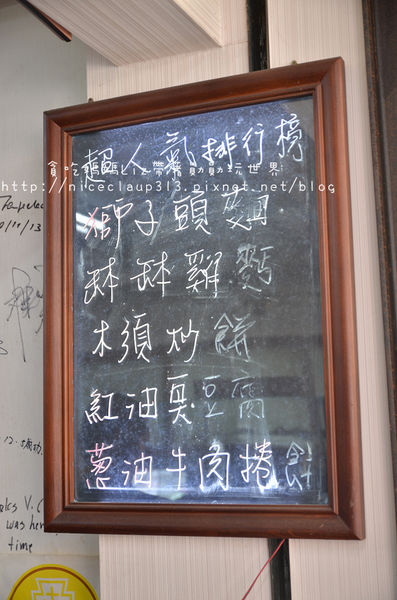 超人氣排行榜
貪吃媽媽Liz帶著勛勛玩世界
http://niceclaup313.pixnet.net/blog
獅子頭麵
缽缽雞麵
木須炒餅
紅油臭豆腐
蔥油牛肉捲餅
was her
time